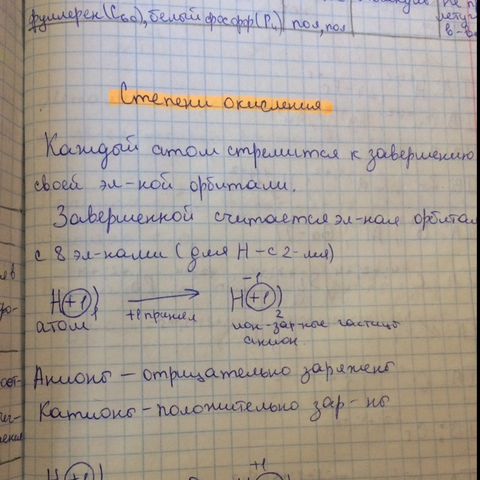 фуллерен(C60), белый фосфор(P4) пол, пол
лету
в-в
Степени окисления
Каждый атом стремится к завершению
своей эл-ной орбитали.
Завершенной считается эл-ная орбитал
с 8 эл-нами (для H - с 2-мя)
-1
H (+1) ) → H (+1) )
1 +1 принял 2
атом ион-зар-ные частицы
анион
Анионы – отрицательно заряжены
Катионы – положительно зар-ны
+1
H (+1)